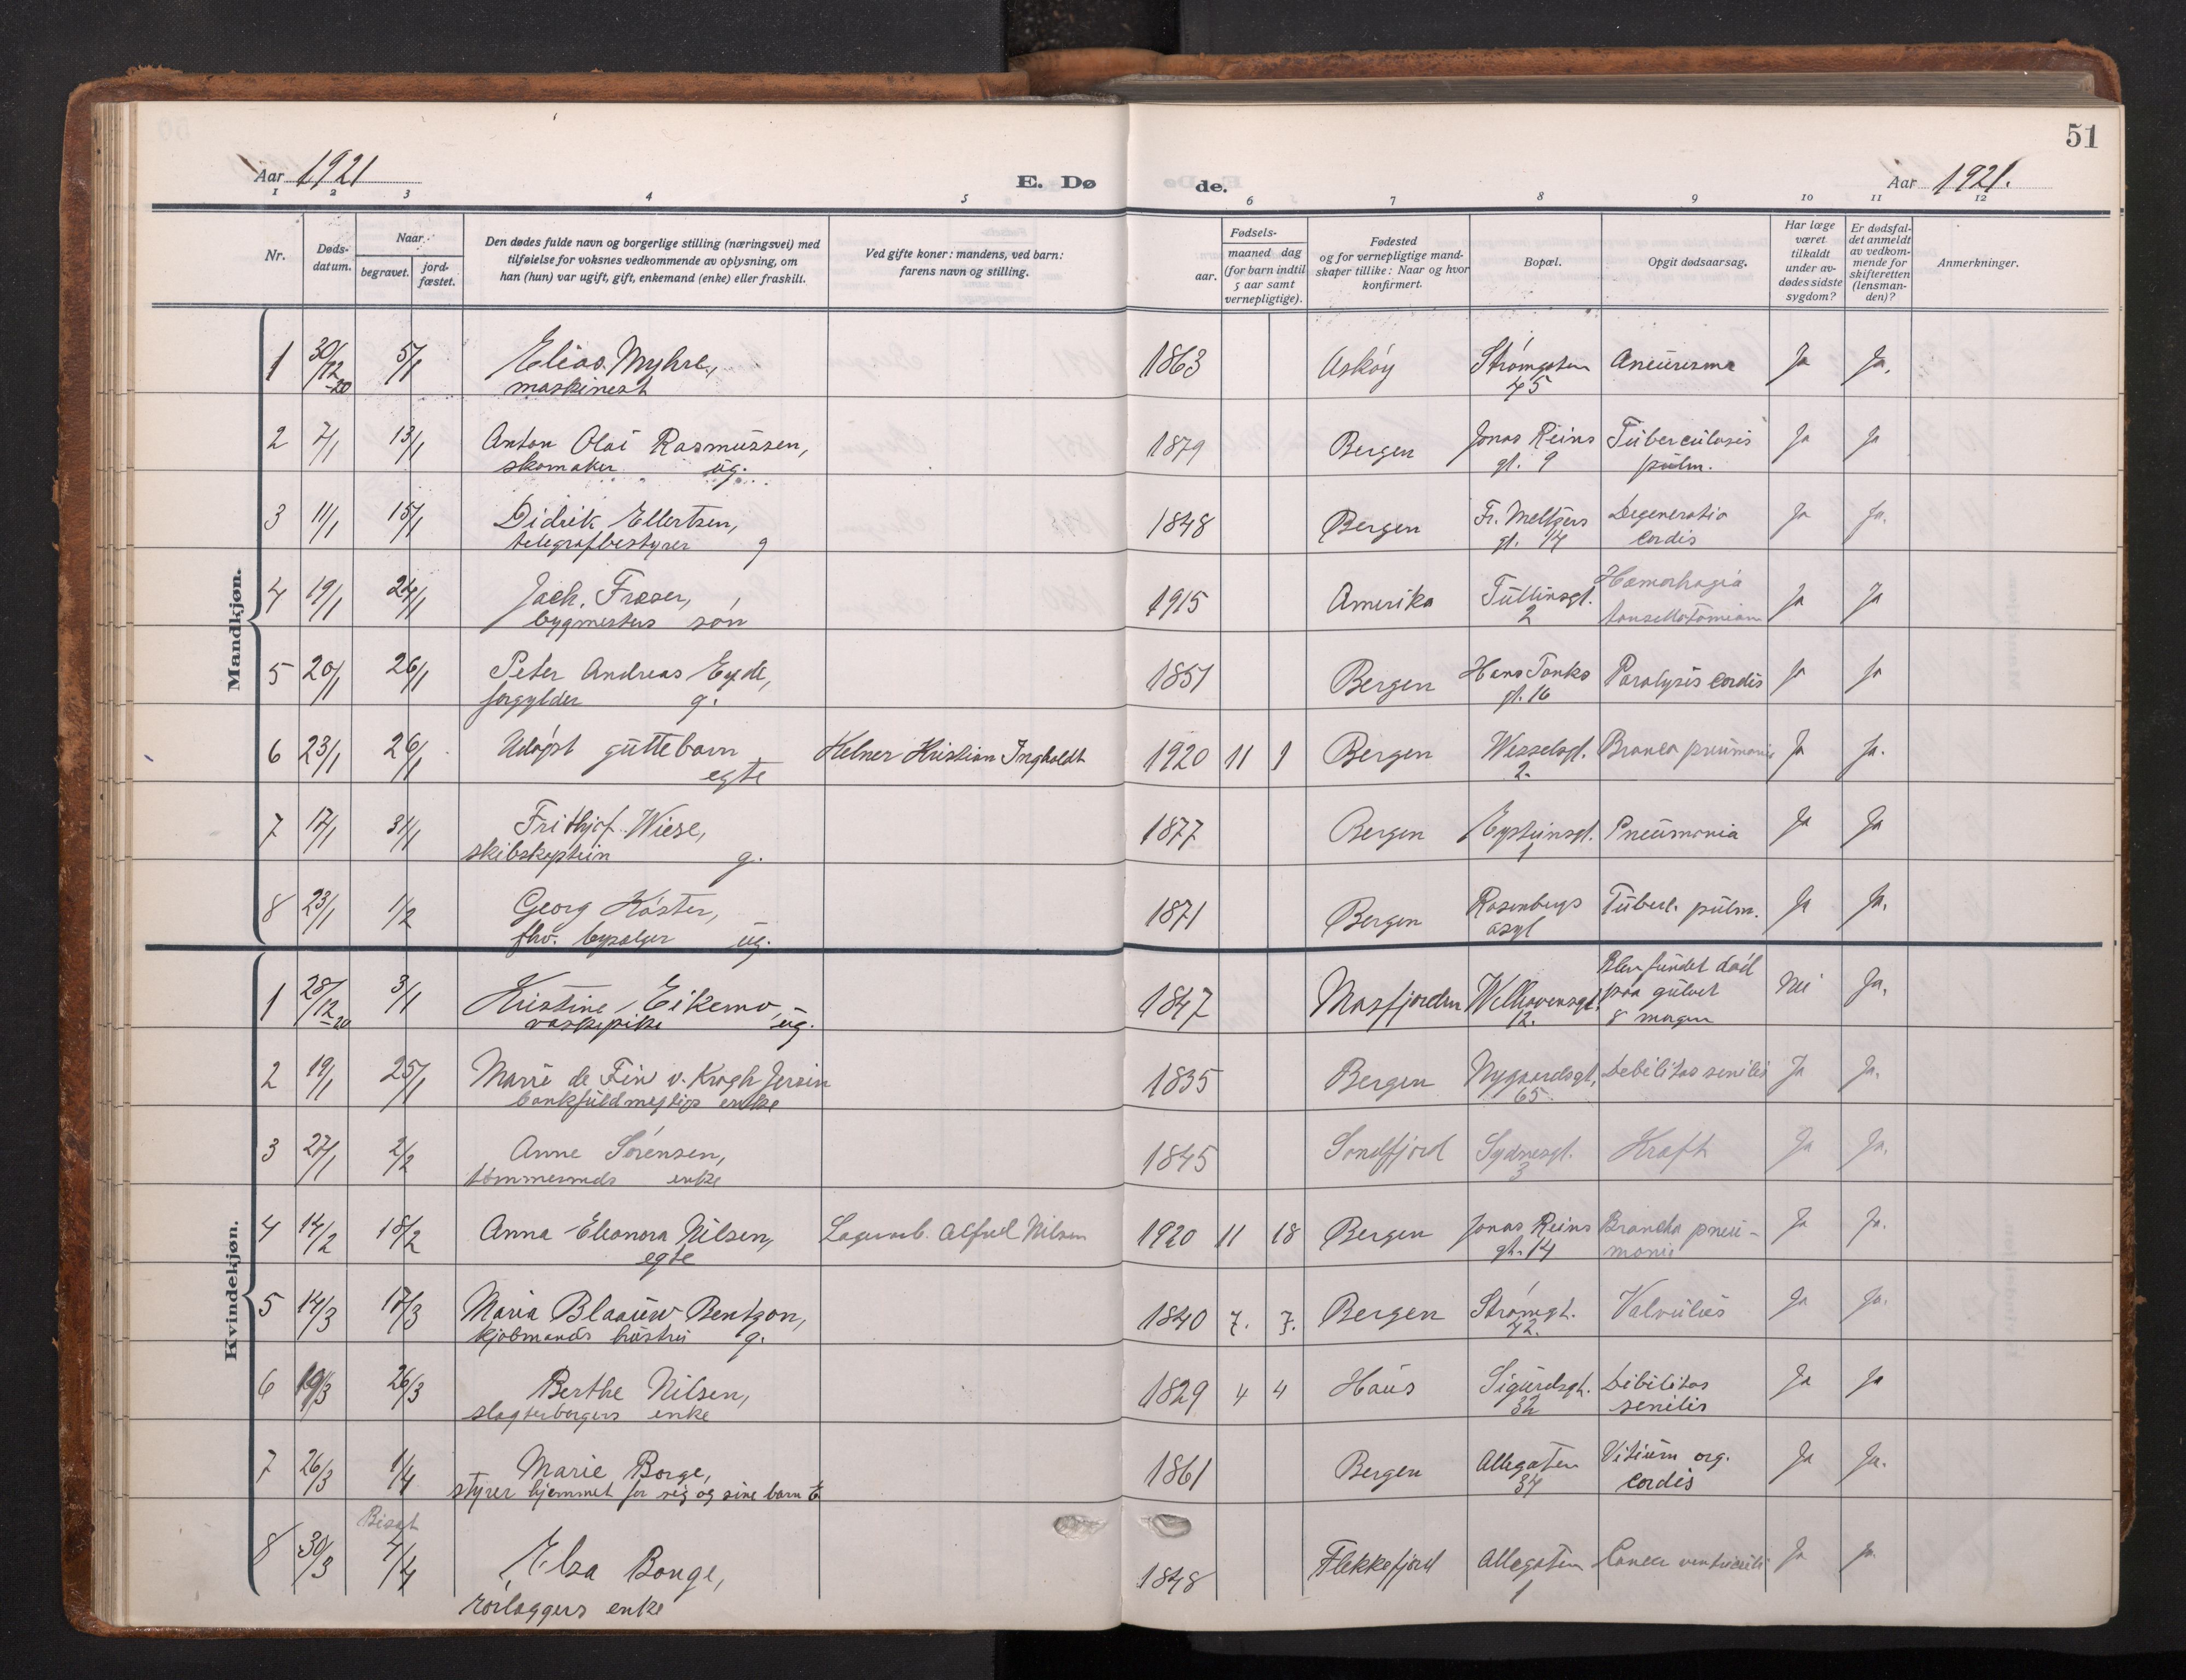 51
Aar 1921
E. Dø
de.
Aar 1921.
1 2 3 4 5 6 7 8 9 10 11 12
Nr.
Døds-
datum.
Naar
begravet.
jord-
fæstet.
Den dødes fulde navn og borgerlige stilling (næringsvei) med
tilføielse for voksnes vedkommende av oplysning, om
han (hun) var ugift, gift, enkemand (enke) eller fraskilt.
Ved gifte koner: mandens, ved barn:
farens navn og stilling.
Fødsels-
aar.
maaned dag
(for barn indtil
5 aar samt
vernepligtige).
Fødested
og for vernepligtige mand-
skaper tillike: Naar og hvor
konfirmert.
Bopæl.
Opgit dødsaarsag.
Har læge
været
tilkaldt
under av-
dødes sidste
sygdom?
Er dødsfal-
det anmeldt
av vedkom-
mende for
skifteretten
(lensman-
den)?
Anmerkninger.
Mandkjøn.
1 30/12-20 5/1 Elias Myhre, 1863 Askøy Strømgaten Aneurisma Ja Ja.
maskinist 45
2 7/1 13/1 Anton Olai Rasmussen, 1879 Bergen Jonas Reins Tuberculosis Ja Ja
skomaker ug. gt. 9 pulm.
3 11/1 15/1 Didrik Ellertsen, 1848 Bergen Fr. Meltzers Degeneratio Ja Ja.
telegrafbestyrer g gt. 14 cordis
4 19/1 24/1 Jack. Fraser, 1915 Amerika Tullinsgt. Hæmorhagia Ja Ja
bygmesters søn 2
5 20/1 26/1 Peter Andreas Eyde, 1851 Bergen Hans Tanks Paralysis cordis Ja Ja
forgylder g. gt. 16
6 23/1 26/1 Udøpt guttebarn Kelner Kristian Ingholdt 1920 11 9 Bergen Wesselsgt. Bronco pneumonie Ja Ja.
egte 2.
7 17/1 31/1 Frithjof Wiese, 1877 Bergen Eysteinsgt. Pneumonia Ja Ja
skibskaptein g. 1
8 23/1 1/2 Georg Køster, 1871 Bergen Rosenbergs Tuberc. pulm. Ja Ja.
fhv. bysælger ug. asyl
Kvindekjøn.
1 28/12-20 3/1 Kristine Eikemo, 1847 Masfjorden Welhavensgt. Blev fundet død Nei Ja.
vaskepike ug. 12. paa gulvet
8 morgen
2 19/1 25/1 Marie de Fine v. Krogh Jersin 1835 Bergen Nygaardsgt. Debilitas senilis Ja Ja.
bankfuldmegtigs enke 65
3 27/1 2/2 Anne Sørensen, 1845 Søndfjord Sydnesgt. Kraft Ja Ja.
tømmermds enke 3
4 14/2 18/2 Anna Eleonora Nilsen, Lagerarb. Alfred Nilsen 1920 11 18 Bergen Jonas Reins Broncho pneu- Ja Ja.
egte gt. 14 monie
5 14/3 17/3 Maria Blaauw Bentzon, 1840 7. 7. Bergen Strømgt. Ja Ja.
kjøbmands hustru g. 42.
6 19/3 26/3 Berthe Nilsen, 1829 4 4 Haus Sigurdsgt. Debilitas Ja Ja
slagterborgers enke 32 senilis
7 26/3 1/4 Marie Borge, 1861 Bergen Allegaten Vitium org. Ja Ja.
styrer hjemmet for sig og sine barn E 34 cordis
Bisat
8 30/3 4/4 Elsa Bonge, 1848 Flekkefjord Allegaten Cancer ventriculi Ja Ja
rørlæggers enke 1